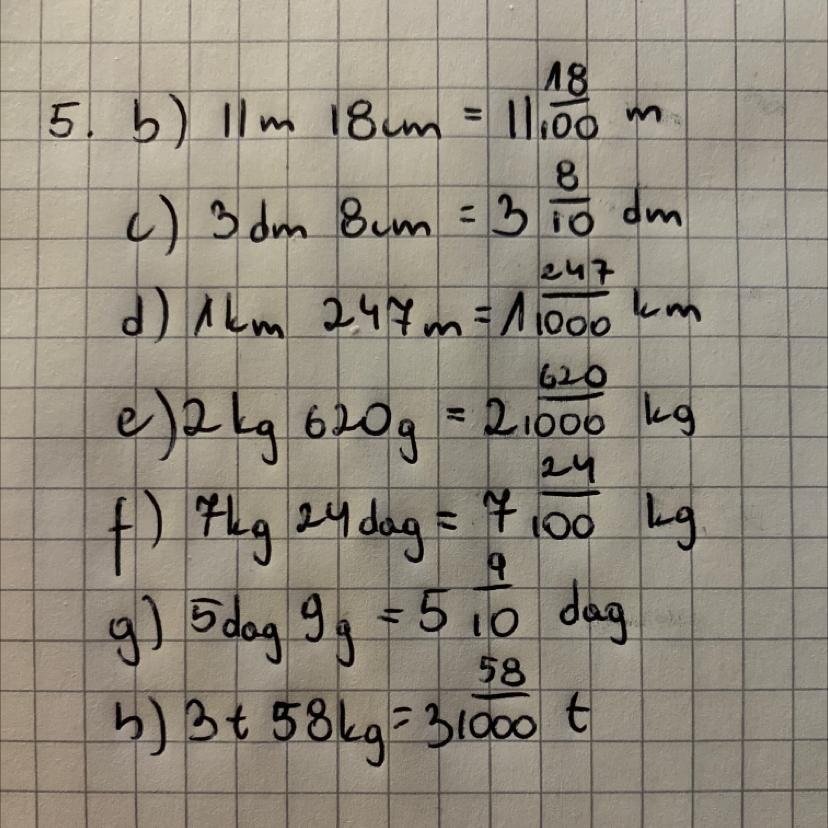 5. b) 11m 18cm = 11 18/100 m
c) 3dm 8cm = 3 8/10 dm
d) 1km 247m = 1 247/1000 km
e) 2kg 620g = 2 620/1000 kg
f) 7kg 24dag = 7 24/100 kg
g) 5dag 9g = 5 9/10 dag
h) 3t 58kg = 3 58/1000 t